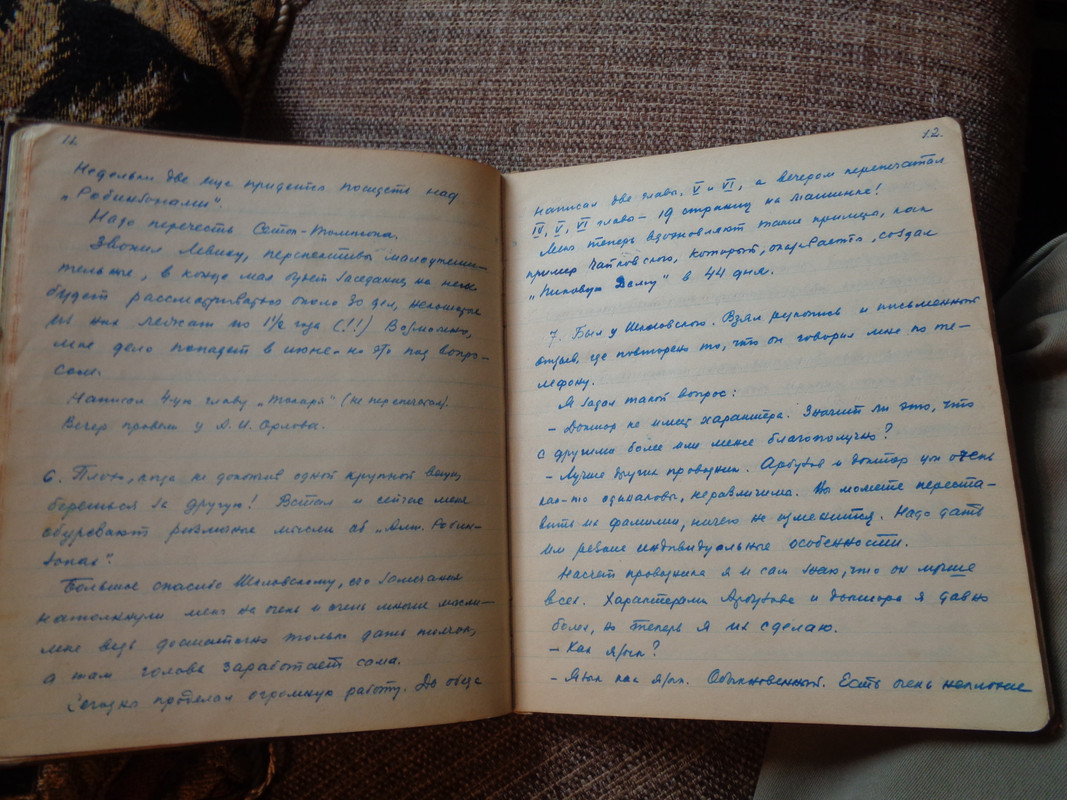 11.
Недельки две еще придется посидеть над
„Робинзонами".
Надо перечесть Сетон-Томпсона.
Звонил Левину, перспективы малоутеши-
тельные, в конце мая будет заседание, на нем
будет рассматриваться около 30 дел, некоторые
из них лежат по 1½ года (!!) Возможно,
мое дело попадет в июне - но это под вопро-
сом.
Написал 4-ую главу „Токаря" (не перепечатал).
Вечер провели у А. И. Орлова.
6. Плохо, когда не докончив одной крупной вещи,
берешься за другую! Встал и сейчас меня
обуревают различные мысли об „Алт. Робин-
зонах".
Большое спасибо Шкловскому, его замечания
натолкнули меня на очень и очень многие мысли -
мне ведь достаточно только дать толчок,
а там голова заработает сама.
Сегодня проделал огромную работу. До обеда
12.
написал две главы, V и VI, а вечером перепечатал
IV, V, VI главы - 19 страниц на машинке!
Меня теперь вдохновляют такие примеры, как
пример Чайковского, который, оказывается, создал
„Пиковую Даму" в 44 дня.
7. Был у Шкловского. Взял рукопись и письменный
отзыв, где повторено то, что он говорил мне по те-
лефону.
Я задал такой вопрос:
- Доктор не имеет характера. Значит ли это, что
с другими более или менее благополучно?
- Лучше других проводник. Арбузов и доктор очень
как-то одинаковы, неразличимы. Вы можете переста-
вить их фамилии, ничего не изменится. Надо дать
им резкие индивидуальные особенности.
Насчет проводника я и сам знаю, что он лучше
всех. Характерами Арбузова и доктора я давно
болен, но теперь я их сделаю.
- Как язык?
- Язык как язык. Обыкновенный. Есть очень неплохие